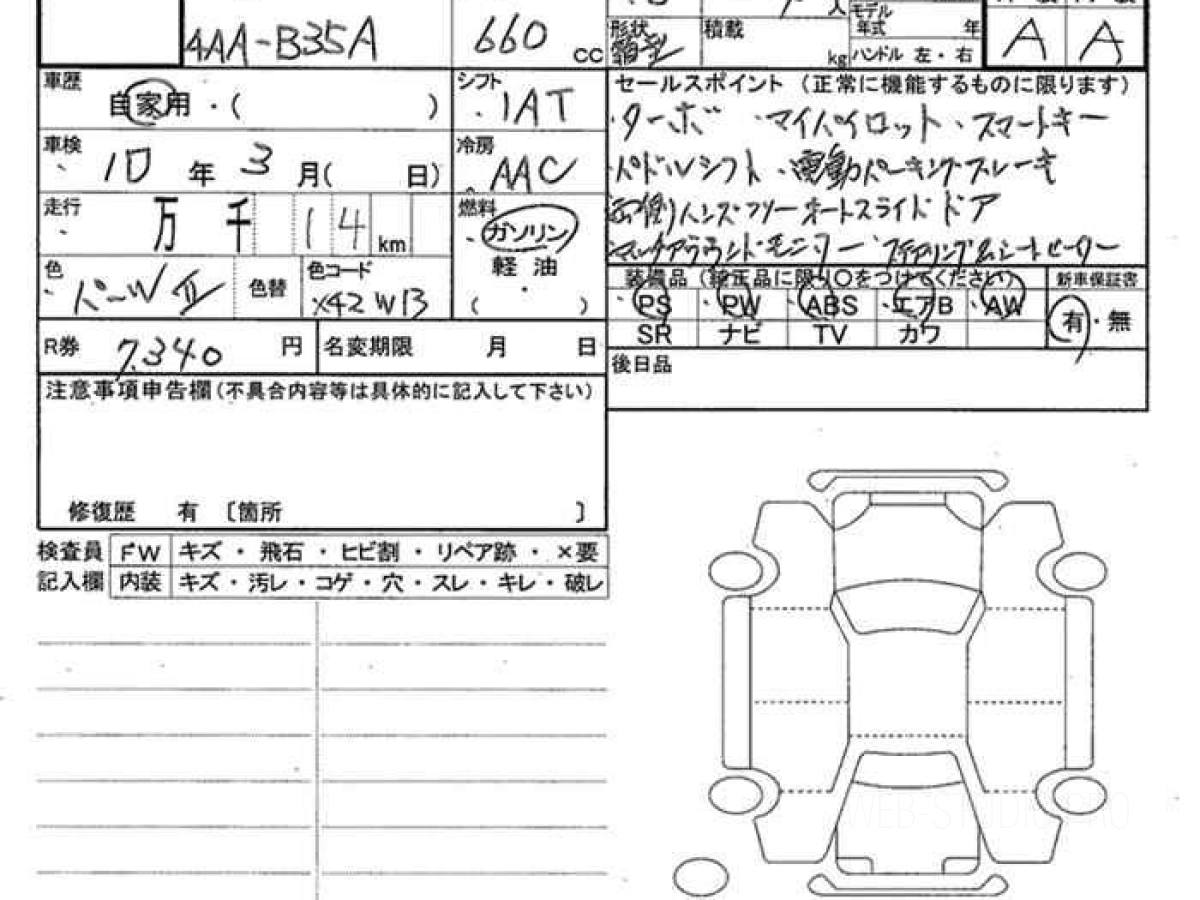 4AA-B35A 660 cc
形状 箱型 積載 kg
人 モデル年式 年
ハンドル 左・右
A A
車歴 自家用・( )
シフト IAT
セールスポイント (正常に機能するものに限ります)
ターボ ・マイパイロット・スマートキー
パドルシフト・電動パーキングブレーキ
両側ハンズフリーオートスライドドア
マルチアラウンドモニター ステアリング&シートヒーター
車検 10 年 3 月( 日)
冷房 AAC
走行 万 千 14 km
燃料 ガソリン
軽油
・
( )
色 パールII 色替 色コード X42 W13
装備品 (純正品に限り〇をつけてください) 新車保証書
PS PW ABS エアB AW 有・無
SR ナビ TV カワ
R券 7,340 円 名変期限 月 日
後日品
注意事項申告欄(不具合内容等は具体的に記入して下さい)
修復歴 有 〔箇所 〕
検査員 FW キズ・飛石・ヒビ割・リペア跡・×要
記入欄 内装 キズ・汚レ・コゲ・穴・スレ・キレ・破レ
WEB-STUDIO.PRO